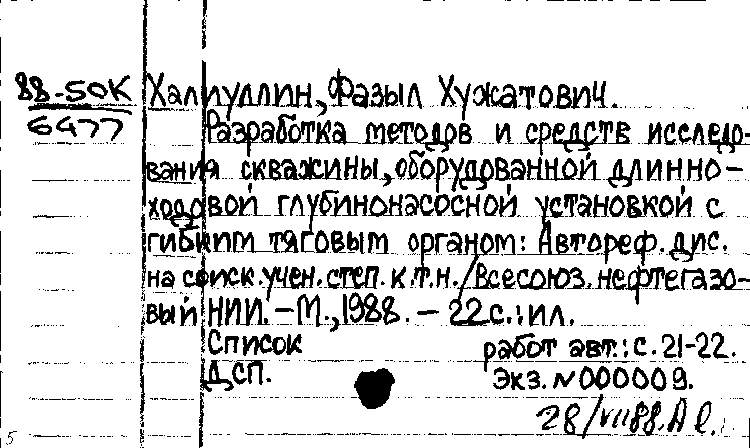 88-50К
6477
Халиуллин, Фазыл Хужатович.
Разработка методов и средств исследо-
вания скважины, оборудованной длинно-
ходовой глубинонасосной установкой с
гибким тяговым органом: Автореф. дис.
на соиск. учен. степ. к.т.н./Всесоюз. нефтегазо-
вый НИИ. - М., 1988. - 22 с.: ил.
Список работ авт.: с. 21-22.
ДСП. Экз. N000009.
28/VII88.
5